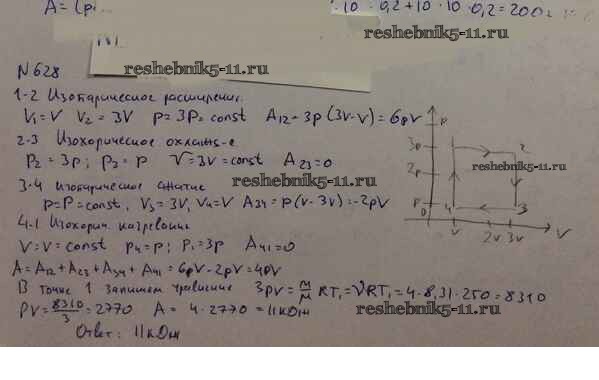 A = (p
10 · 0,2 + 10 · 10 · 0,2 = 200
reshebnik5-11.ru
N 628
reshebnik5-11.ru
1-2 Изобарическое расширение.
V₁ = V V₂ = 3V p = 3P = const A₁₂ = 3p (3V - V) = 6pV
2-3 Изохорическое охлажд-е
P₂ = 3p; p₃ = p V = 3V = const A₂₃ = 0
3-4 изобарическое сжатие
reshebnik5-11.ru
p = P = const, V₃ = 3V, V₄ = V A₃₄ = p (V - 3V) = -2pV
4-1 Изохорич. нагревание
V = V = const p₄ = p; P₁ = 3p A₄₁ = 0
A = A₁₂ + A₂₃ + A₃₄ + A₄₁ = 6pV - 2pV = 4pV
В точке 1 запишем уравнение 3pV = m/M RT₁ = νRT₁ = 4 · 8,31 · 250 = 8310
PV = 8310/3 = 2770 A = 4 · 2770 = 11 кДж
reshebnik5-11.ru
Ответ: 11 кДж
p
3p
2p
p
0
2
4
3
V
2V
3V
V
reshebnik5-11.ru